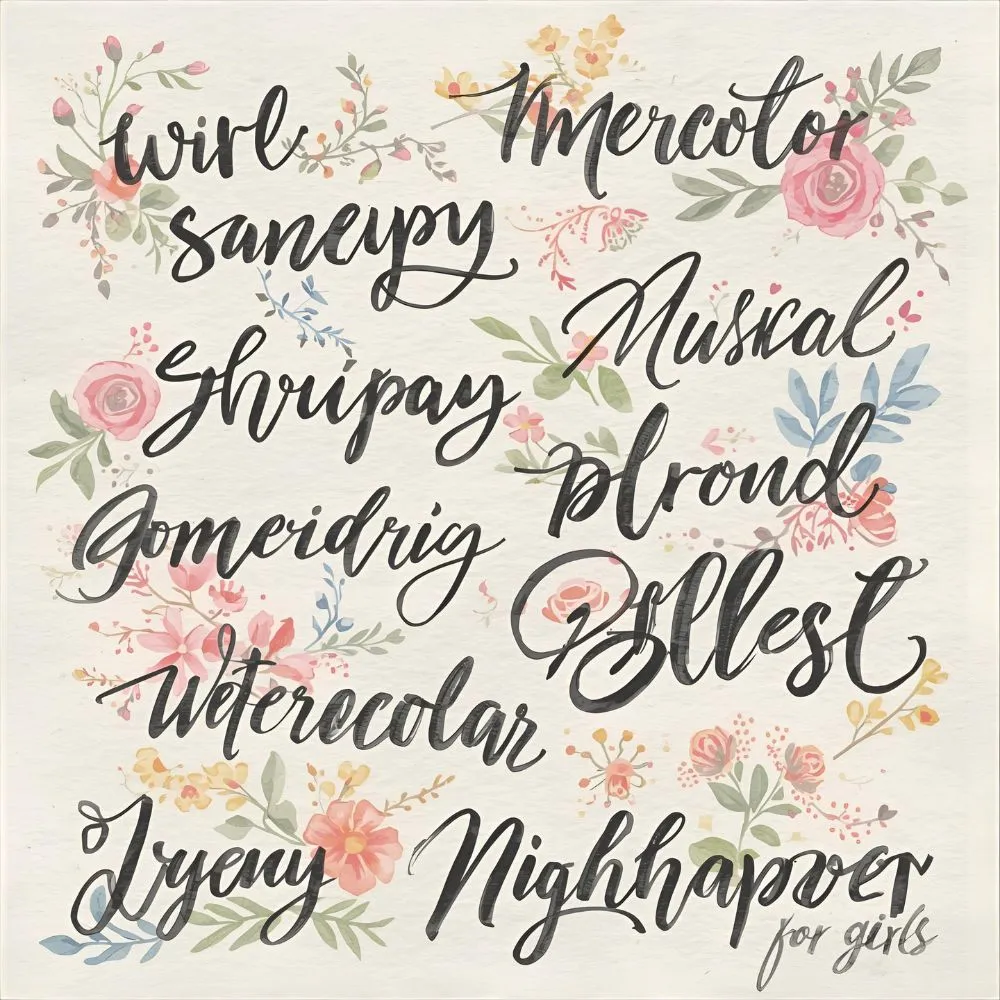 wirl
Mercolor
saneypy
Musical
Ghripay
plrond
Gomeidrig
Bllest
Weterocolar
Jryeny
Nighhapoer
for girls